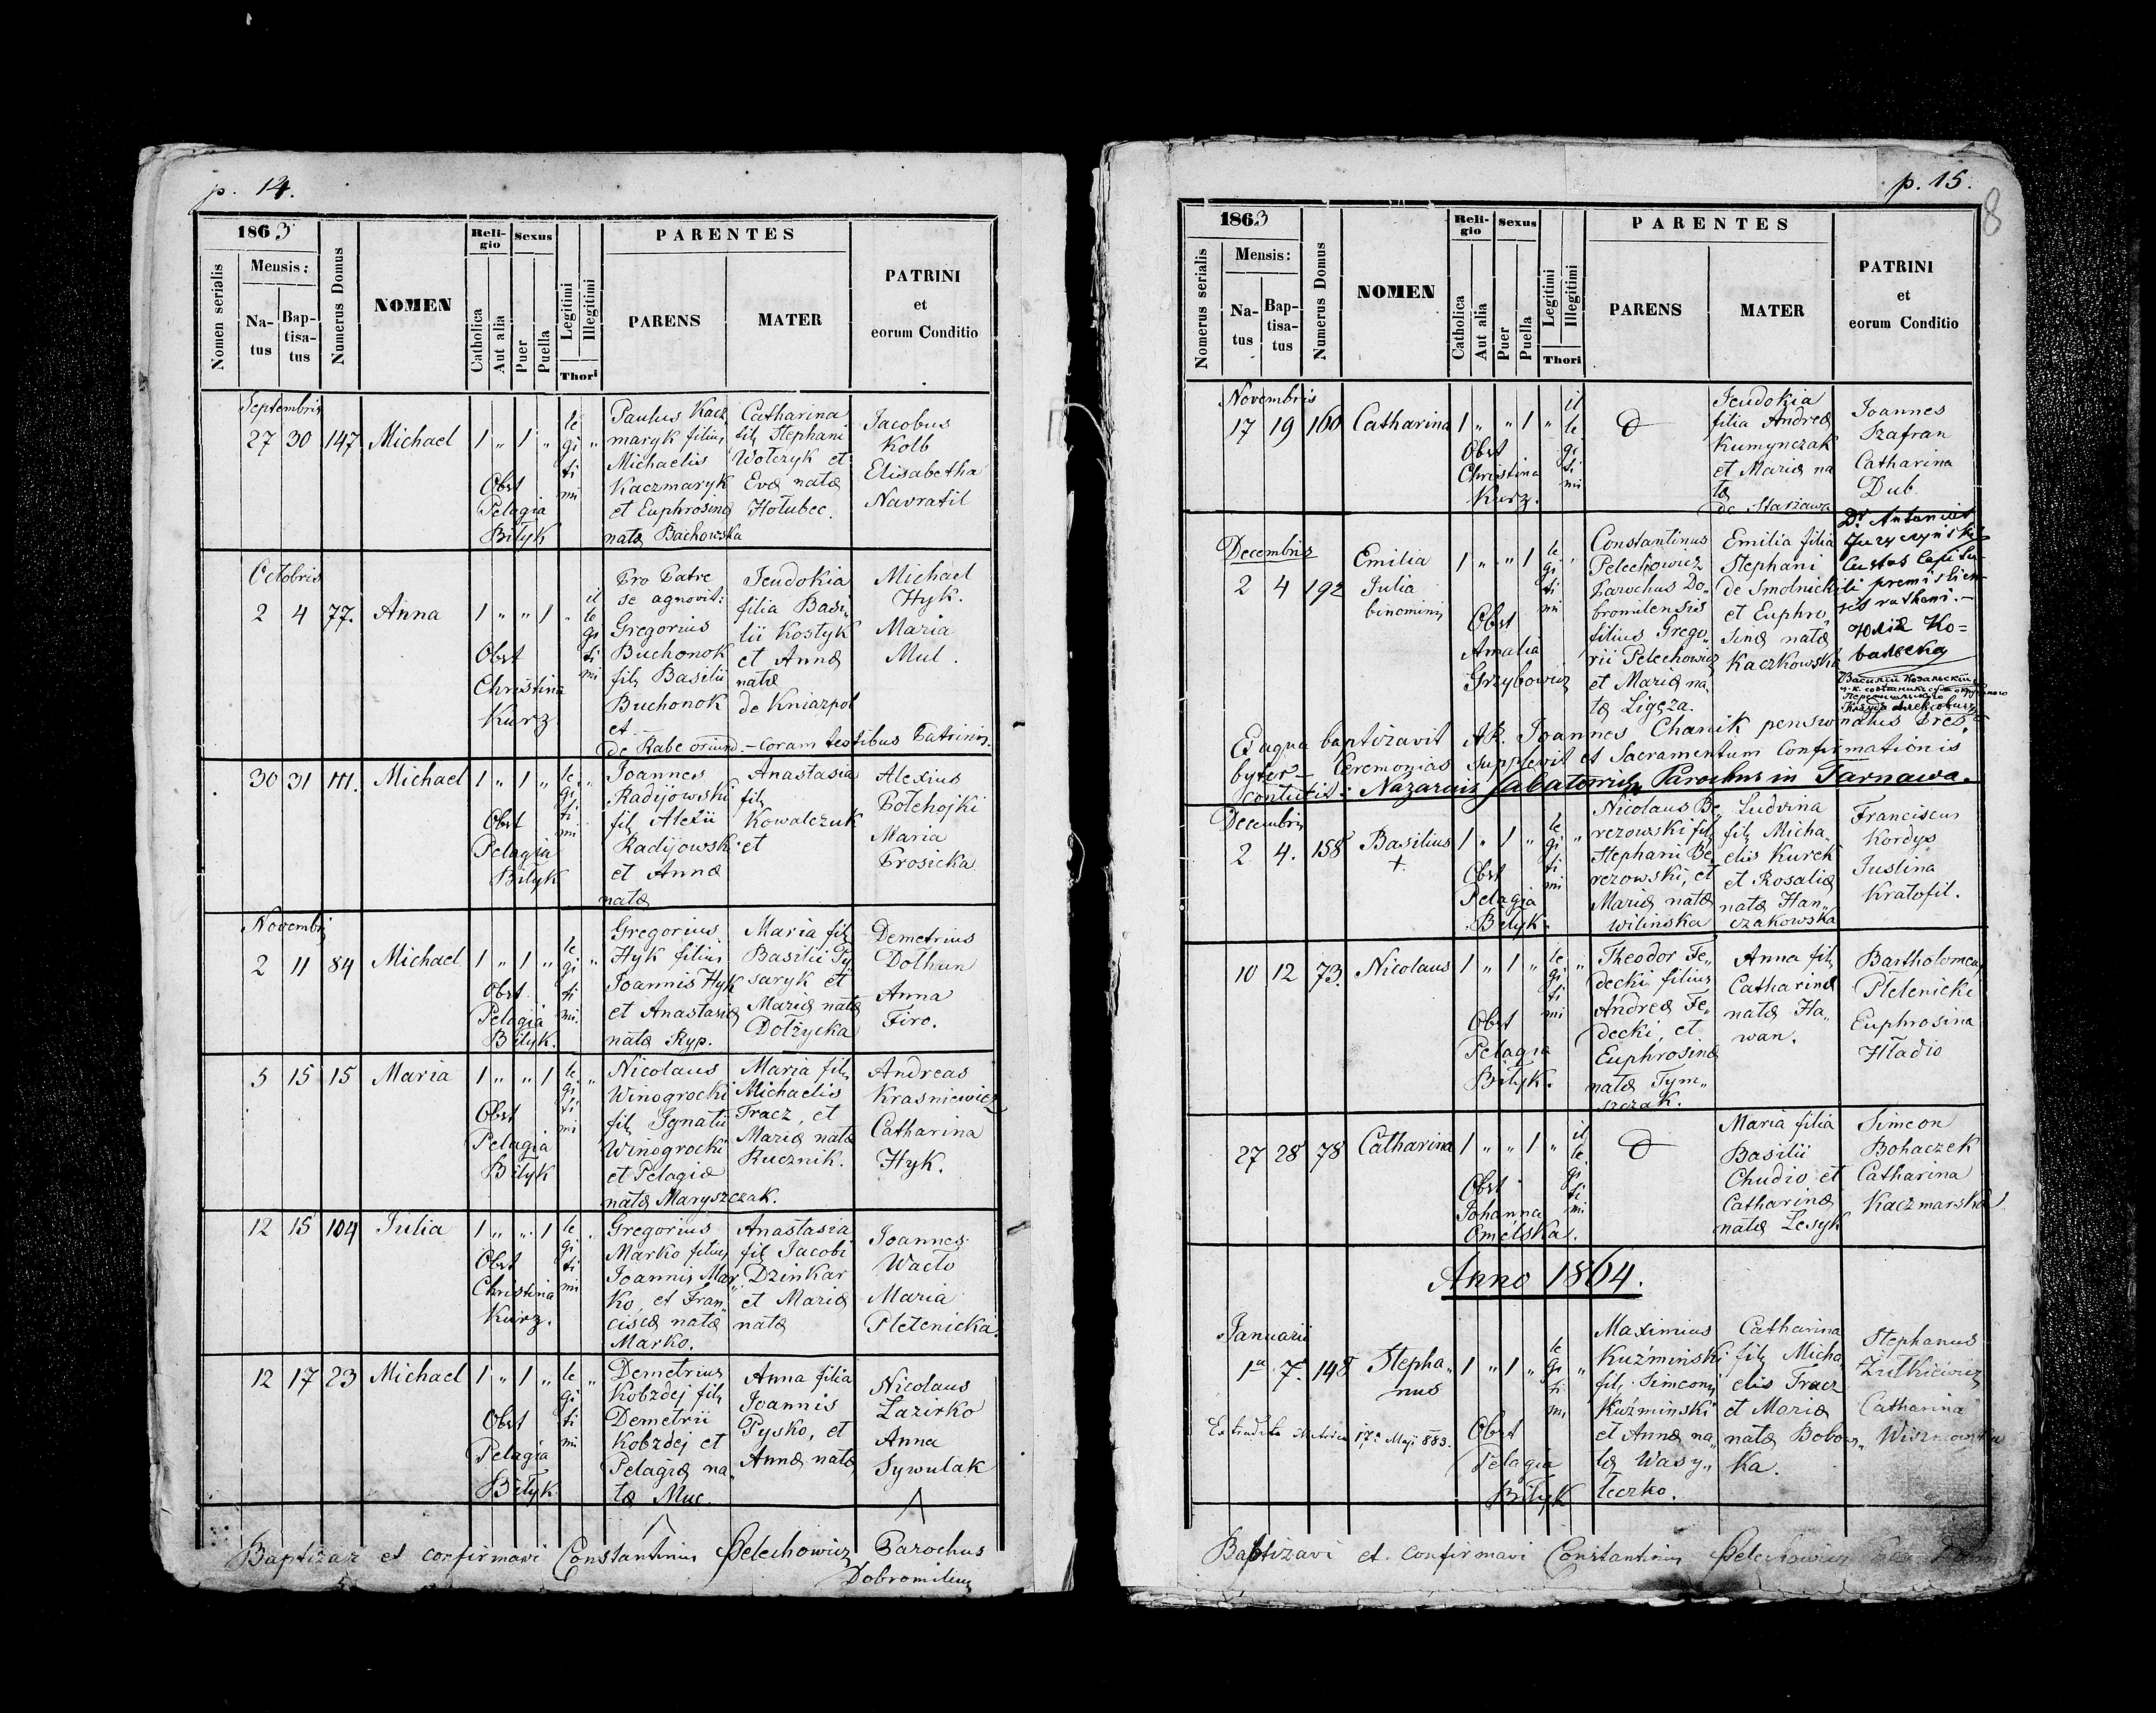 p. 14.
1863
Nomen serialis
Mensis:
Na-
tus
Bap-
tisa-
tus
Numerus Domus
NOMEN
Reli-
gio
Catholica
Aut alia
Sexus
Puer
Puella
Legitimi
Illegitimi
Thori
PARENTES
PARENS
MATER
PATRINI
et
eorum Conditio
Septembris
27 30 147 Michael 1 " 1 " le
gi
ti
mi "
Obst
Pelagia
Bityk
Paulus Kacz
maryk filius
Michaelis
Kaczmaryk
et Euphrosinæ
natæ Bachowska
Catharina
fil Stephani
Wołczyk et
Evæ natæ
Hołubec.
Jacobus
Kolb
Elisabetha
Navratil
Octobris
2 4 77. Anna 1 " " 1 " il
le
gi
ti
mi
Obst
Christina
Kurz
Pro Patre
se agnovit:
Gregorius
Buchonok
fil Basilii
Buchonok
et
de Rabe oriund. - coram testibus Patrinis.
Jeudokia
filia Basi
lii Kostyk
et Annæ
natæ
de Kniazpol
Michael
Hyk.
Maria
Mul.
30 31 111. Michael 1 " 1 " le
gi
ti
mi "
Obst
Pelagia
Bityk
Joannes
Radijowski
fil Alexii
Radijowski
et Annæ
natæ
Anastasia
fil
Kowalczuk
et
Alexius
Połchojki
Maria
Prosicka
Novembris
2 11 84 Michael 1 " 1 " le
gi
ti
mi. "
Obst
Pelagia
Bityk.
Gregorius
Hyk filius
Joannis Hyk
et Anastasiæ
natæ Ryp.
Maria fil
Basilii Py
saryk et
Mariæ natæ
Dołżycka
Demetrius
Dołhun
Anna
Firo.
5 15 15 Maria 1 " " 1 le
gi
ti
mi "
Obst
Pelagia
Bityk
Nicolaus
Winogrocki
fil Ignatii
Winogrocki
et Pelagiæ
natæ Maryszczak.
Maria fil
Michaelis
Tracz, et
Mariæ natæ
Rucznik.
Andreas
Krasniewicz
Catharina
Hyk.
12 15 104 Julia 1 " " 1 le
gi
ti
mi "
Obst
Christina
Kurz.
Gregorius
Marko filius
Joannis Mar
ko, et Fran
ciscæ natæ
Marko.
Anastasia
fil Jacobi
Dzinkar
et Mariæ
natæ
Joannes
Wacło
Maria
Pletenicka.
12 17 23 Michael 1 " 1 " le
gi
ti
mi "
Obst
Pelagia
Bityk
Demetrius
Kobzdej fil
Demetrii
Kobzdej et
Pelagiæ na
tæ Muc.
Anna filia
Joannis
Pysko, et
Annæ natæ
Nicolaus
Łazirko
Anna
Sywulak
Baptizavi et confirmavi Constantinus Pelechowicz Parochus
Dobromilens
p. 15.
8
1863
Nomerus serialis
Mensis:
Na-
tus
Bap-
tisa-
tus
Numerus Domus
NOMEN
Reli-
gio
Catholica
Aut alia
Sexus
Puer
Puella
Legitimi
Illegitimi
Thori
PARENTES
PARENS
MATER
PATRINI
et
eorum Conditio
Novembris
17 19 160 Catharina 1 " " 1 " il
le
gi
ti
mi
Obst
Christina
Kurz.
Jeudokia
filia Andreæ
Kumynczak
et Mariæ na
tæ
de Starzawa
Joannes
Szafran
Catharina
Dub.
Decembris
2 4 192 Emilia
Julia
binominis
1 " " 1 le
gi
ti
mi
Obst
Amalia
Grzybowicz
Constantinus
Pelechowicz
Parochus Do
bromilensis
filius Grego
rii Pelechowicz
et Mariæ na
tæ Ligęza.
Emilia filia
Stephani
de Smolnicki
et Euphro
sinæ natæ
Kaczkowska
Dr Antonius
Juzyczynski
Custos Capitu-
li premislien-
sis rutheni.-
Юлія Ко=
валска
Ex aqua baptizavit AR. Joannes Chanik pensionatus Pres
byter - Ceremonias supplevit et Sacramentum Confirmationis
contulit: Nazarius Parochus in Tarnawa.
Decembris
2 4. 158 Basilius
+
1 " 1 " le
gi
ti
mi "
Obst
Pelagia
Bityk.
Nicolaus Be
rezowski fil
Stephani Be
rezowski, et
Mariæ natæ
Wilinska
Ludvina
fil Micha
elis Kurek
et Rosaliæ
natæ Han
czakowska
Franciscus
Kordys
Justina
Kratofil.
10 12 73. Nicolaus 1 " 1 " le
gi
ti
mi "
Obst
Pelagia
Bityk.
Theodor Fe
decki filius
Andreæ Fe
decki, et
Euphrosinæ
natæ Tym
szczak.
Anna fil
Catharinæ
natæ Ha
wan.
Bartholomeus
Pletenicki
Euphrosina
Hładio
27 28 78 Catharina 1 " " 1 " il
le
gi
ti
mi
Obst
Johanna
Omelska.
Maria filia
Basilii
Chudio et
Catharinæ
natæ Lesyk
Simeon
Bohaczek
Catharina
Kaczmarska
Anno 1864.
Januarii
1a 7. 148 Stepha
nus
1 " 1 " le
gi
ti
mi "
Obst
Pelagia
Bityk
Maximius
Kuźminski
fil Simeonis
Kuźminski
et Annæ na
tæ Wasy
leczko.
Catharina
fil Micha
elis Tracz
et Mariæ
natæ Bobow
ka.
Stephanus
Żułkiewicz
Catharina
Extradita Metrica 17a Maji 883.
Baptizavi et confirmavi Constantinus Pelechowicz